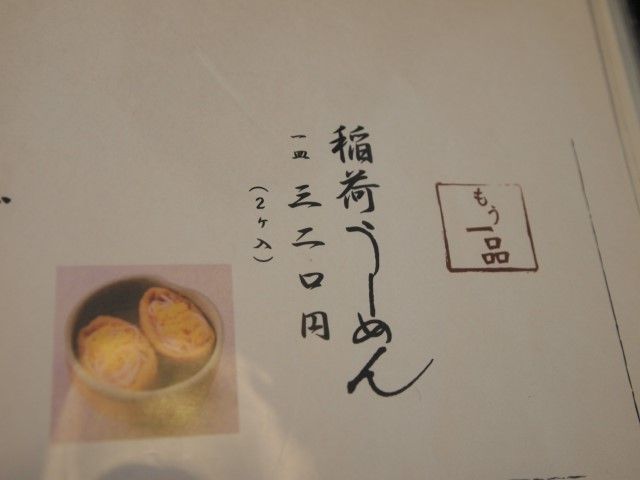 もう
一品
稲荷うーめん
一皿 三二〇円
(2ヶ入)